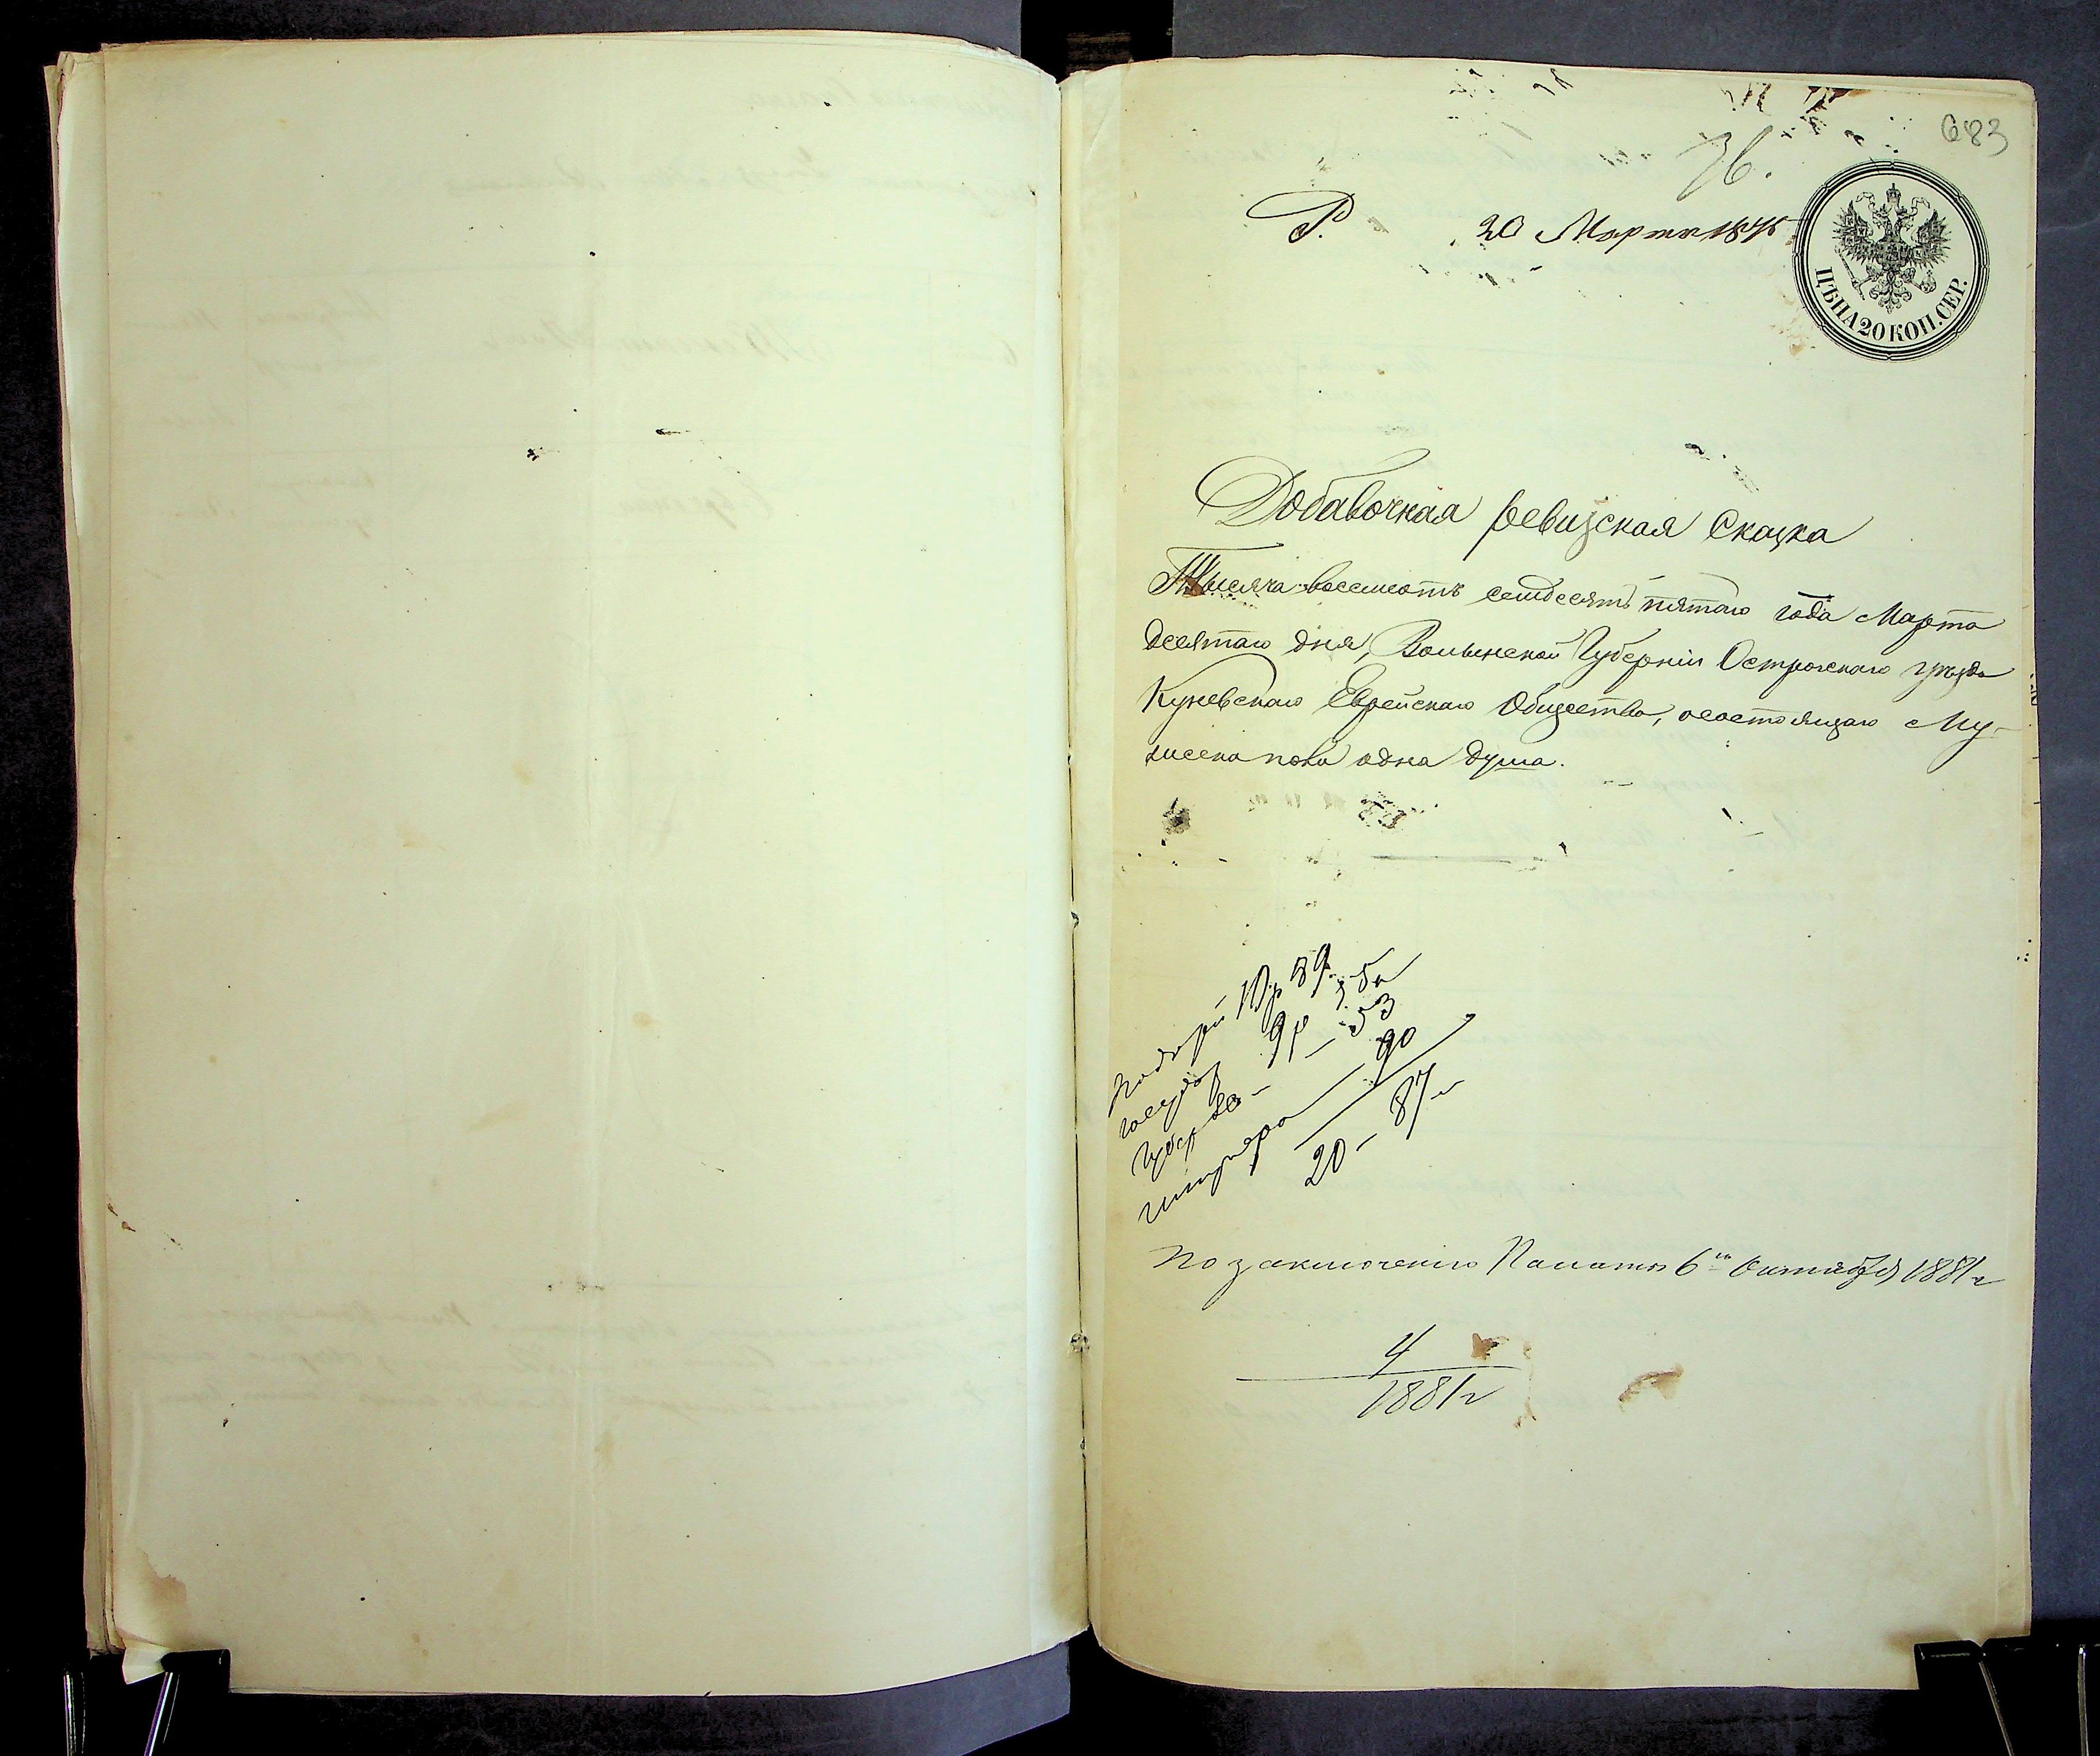 683
76.
Р. 20 Марта 1875
ЦѢНА 20 КОП. СЕР.
Добавочная ревизская Сказка
Тысяча восемсотъ семдесятъ пятого года Марта
десятаго дня, Волынской Губерніи Острожскаго уѣзда
Куневскаго Еврейскаго Общества, о состоящаго Му-
жеска пола одна душа.
подушн 10р 39
государ 9р
губерск - 53
90
20 - 87
По заключенію Палаты 6го Октября 1881г
4
1881г